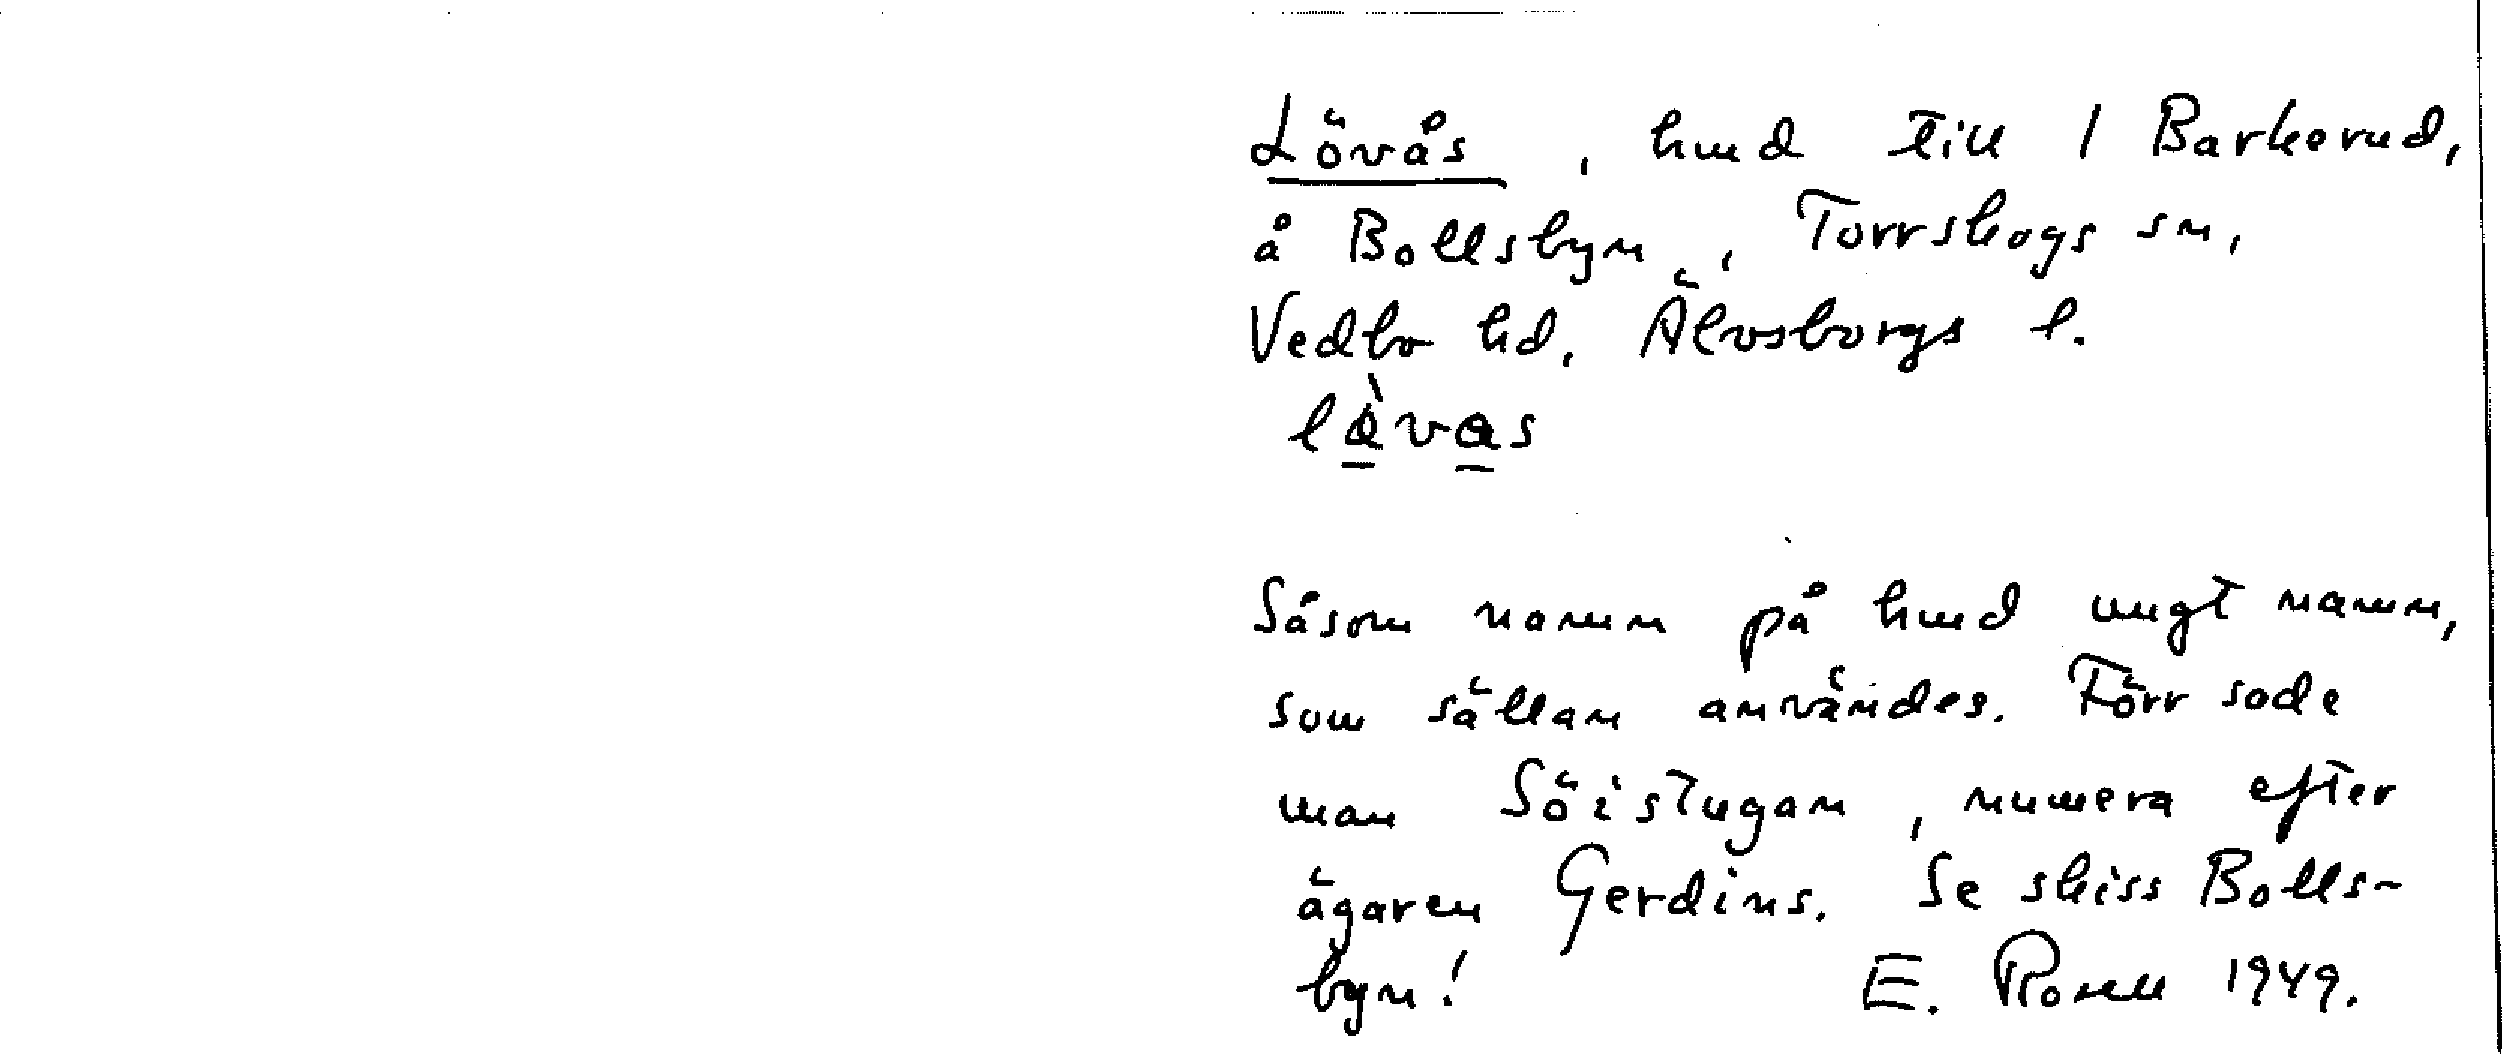 Lövås, hmd till 1 Barkerud,
å Bollsbyn, Torrskogs sn,
Vedbo hd, Älvsborgs l.
Såsom namn på hmd ungt namn,
som sällan användes. Förr sade
man Söistugan, numera efter
ägaren Gerdins. Se skiss Bolls-
byn! E. Rosell 1949.